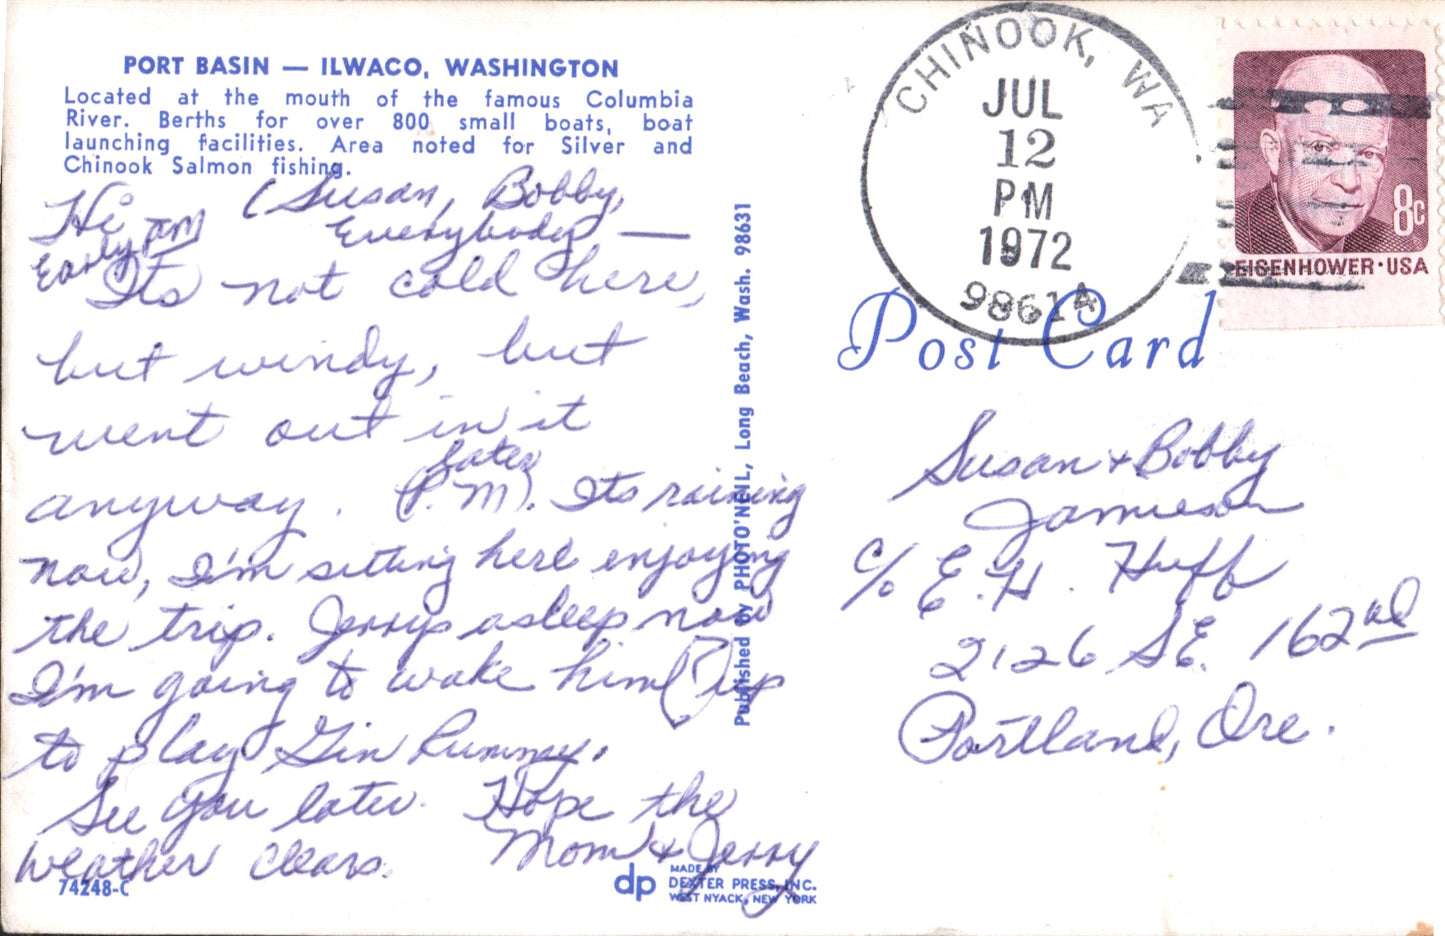 PORT BASIN — ILWACO, WASHINGTON
Located at the mouth of the famous Columbia
River. Berths for over 800 small boats, boat
launching facilities. Area noted for Silver and
Chinook Salmon fishing.
Hi (Susan, Bobby,
Early PM Everybody —
Its not cold here,
but windy, but
went out in it
anyway. Later (P.M). Its raining
now, I'm sitting here enjoying
the trip. Jerrys asleep now
I'm going to wake him (?) up
to play Gin Rummy.
See you later. Hope the
weather clears. Mom & Jerry
74248-C
dp
MADE BY
DEXTER PRESS, INC.
WEST NYACK, NEW YORK
Published by PHOTO'NEIL, Long Beach, Wash. 98631
CHINOOK, WA
JUL
12
PM
1972
98614
8c
EISENHOWER·USA
Post Card
Susan + Bobby
Jamieson
c/o E. H. Huff
2126 SE. 162nd
Portland, Ore.